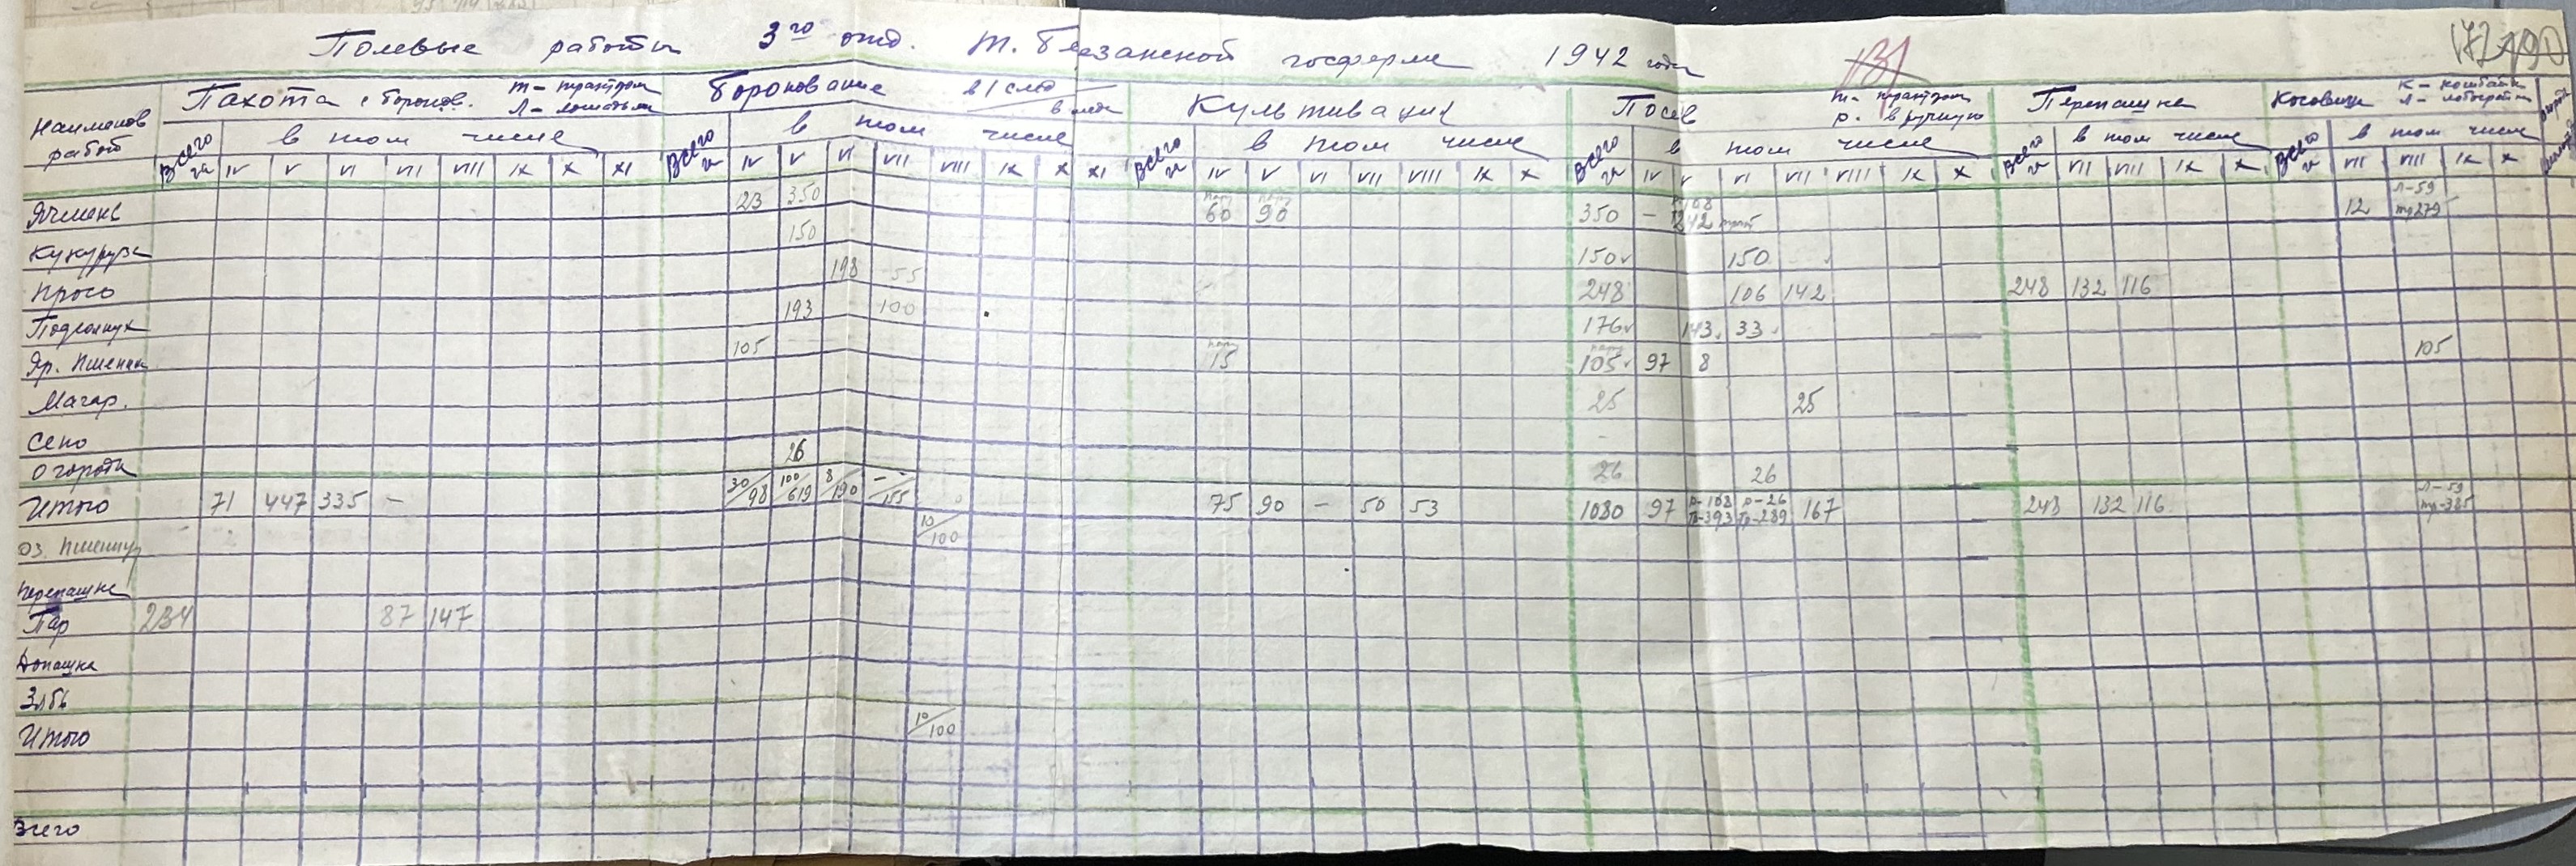 Полевые работы 3го отд. Т. Березанской госферме 1942 года
131
172 190
Наименов работ | Пахота с боронов. т – трактором л – лошадьми | Боронование в 1 след | Культивация | Посев т – трактором р. – вручную | Перепашка | Косовица к – комбайн л – лобогрейк
Всего га | в том числе | Всего га | в том числе | Всего га | в том числе | Всего га | в том числе | Всего га | в том числе | Всего га | в том числе
IV V VI VII VIII IX X XI | IV V VI VII VIII IX X XI | IV V VI VII VIII IX X | IV V VI VII VIII IX X | VII VIII IX X | VII VIII IX X
Ячмень 23 350 60 90 350 – 108 242 12 л-59 тр 279
Кукуруза 150 150 150
Просо 198 55 248 106 142 248 132 116
Подсолнух 193 100 176 143 33
Яр. Пшениц 105 15 105 97 8 105
Магар. 25 25
Сено
Огороды 26 26 26
Итого 71 447 335 – 30/98 100/619 8/190 –/155 75 90 – 50 53 1080 97 р-108 тр-393 р-26 тр-289 167 248 132 116 л-59 тр-385
Оз. Пшениц 10/100
Перепашка
Пар 234 87 147
Допашка
Зябь
Итого 10/100
Всего